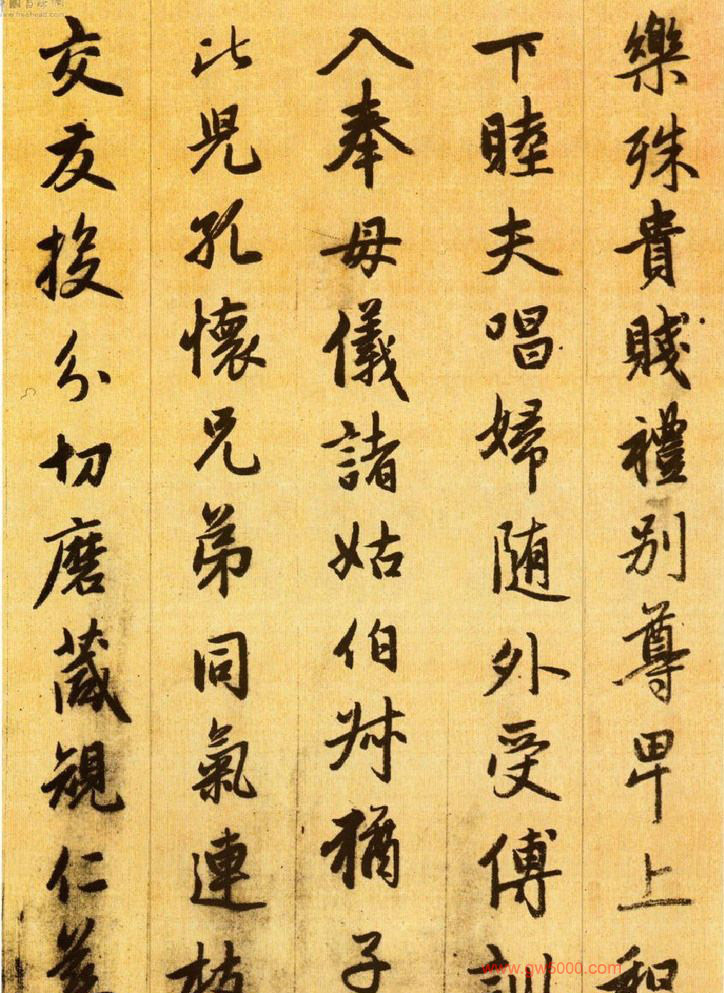 樂殊貴賤禮別尊卑上和
下睦夫唱婦随外受傅訓
入奉母儀諸姑伯叔猶子
比兒孔懷兄弟同氣連枝
交友投分切磨葴規仁慈
www.freehead.com
www.gw5000.com